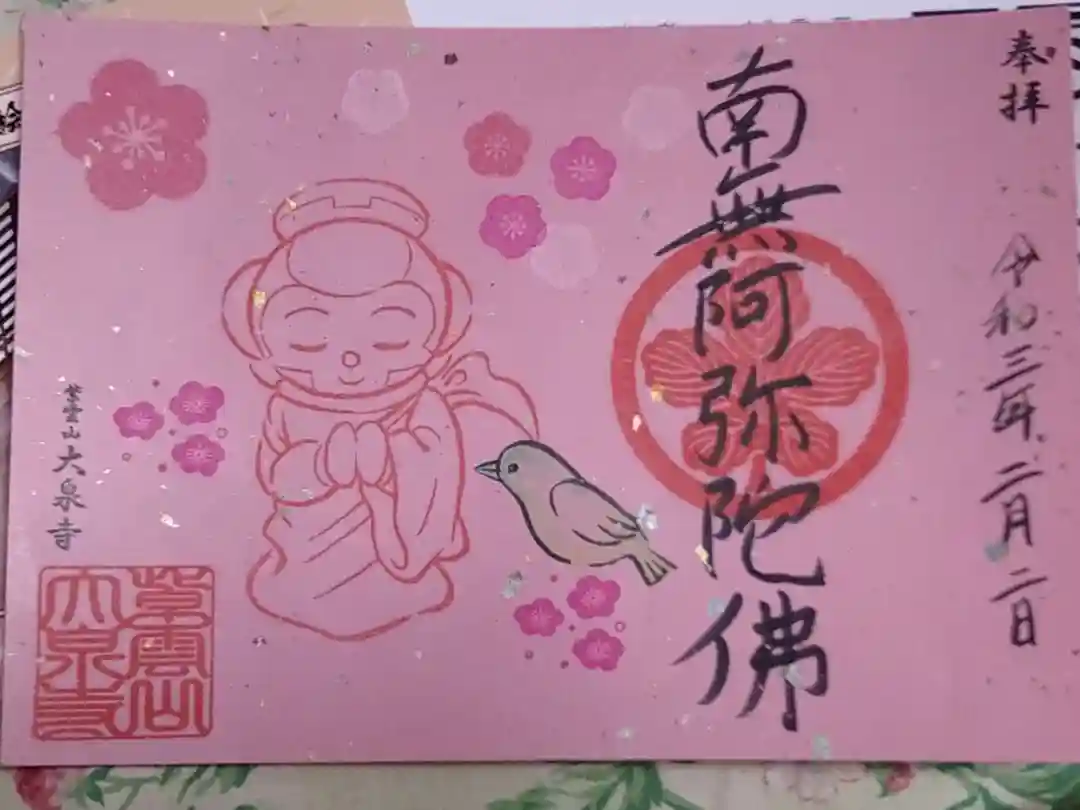 奉拝
令和三年二月二日
南無阿弥陀佛
紫雲山
大泉寺
紫雲山
大泉寺
絵